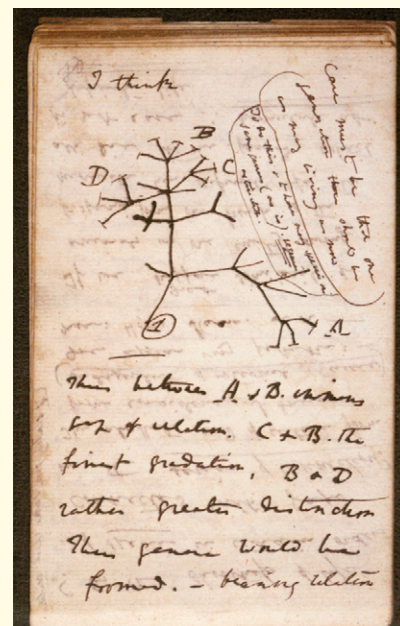 I think
Case must be that one
generation then should be
as many living as now
To do this & to have many species in
same genus (as is). requires
extinction.
B
C
D
A
1
Thus between A. & B. immense
gap of relation. C & B. the
finest gradation, B & D
rather greater distinction
Thus genera would be
formed. — bearing relation